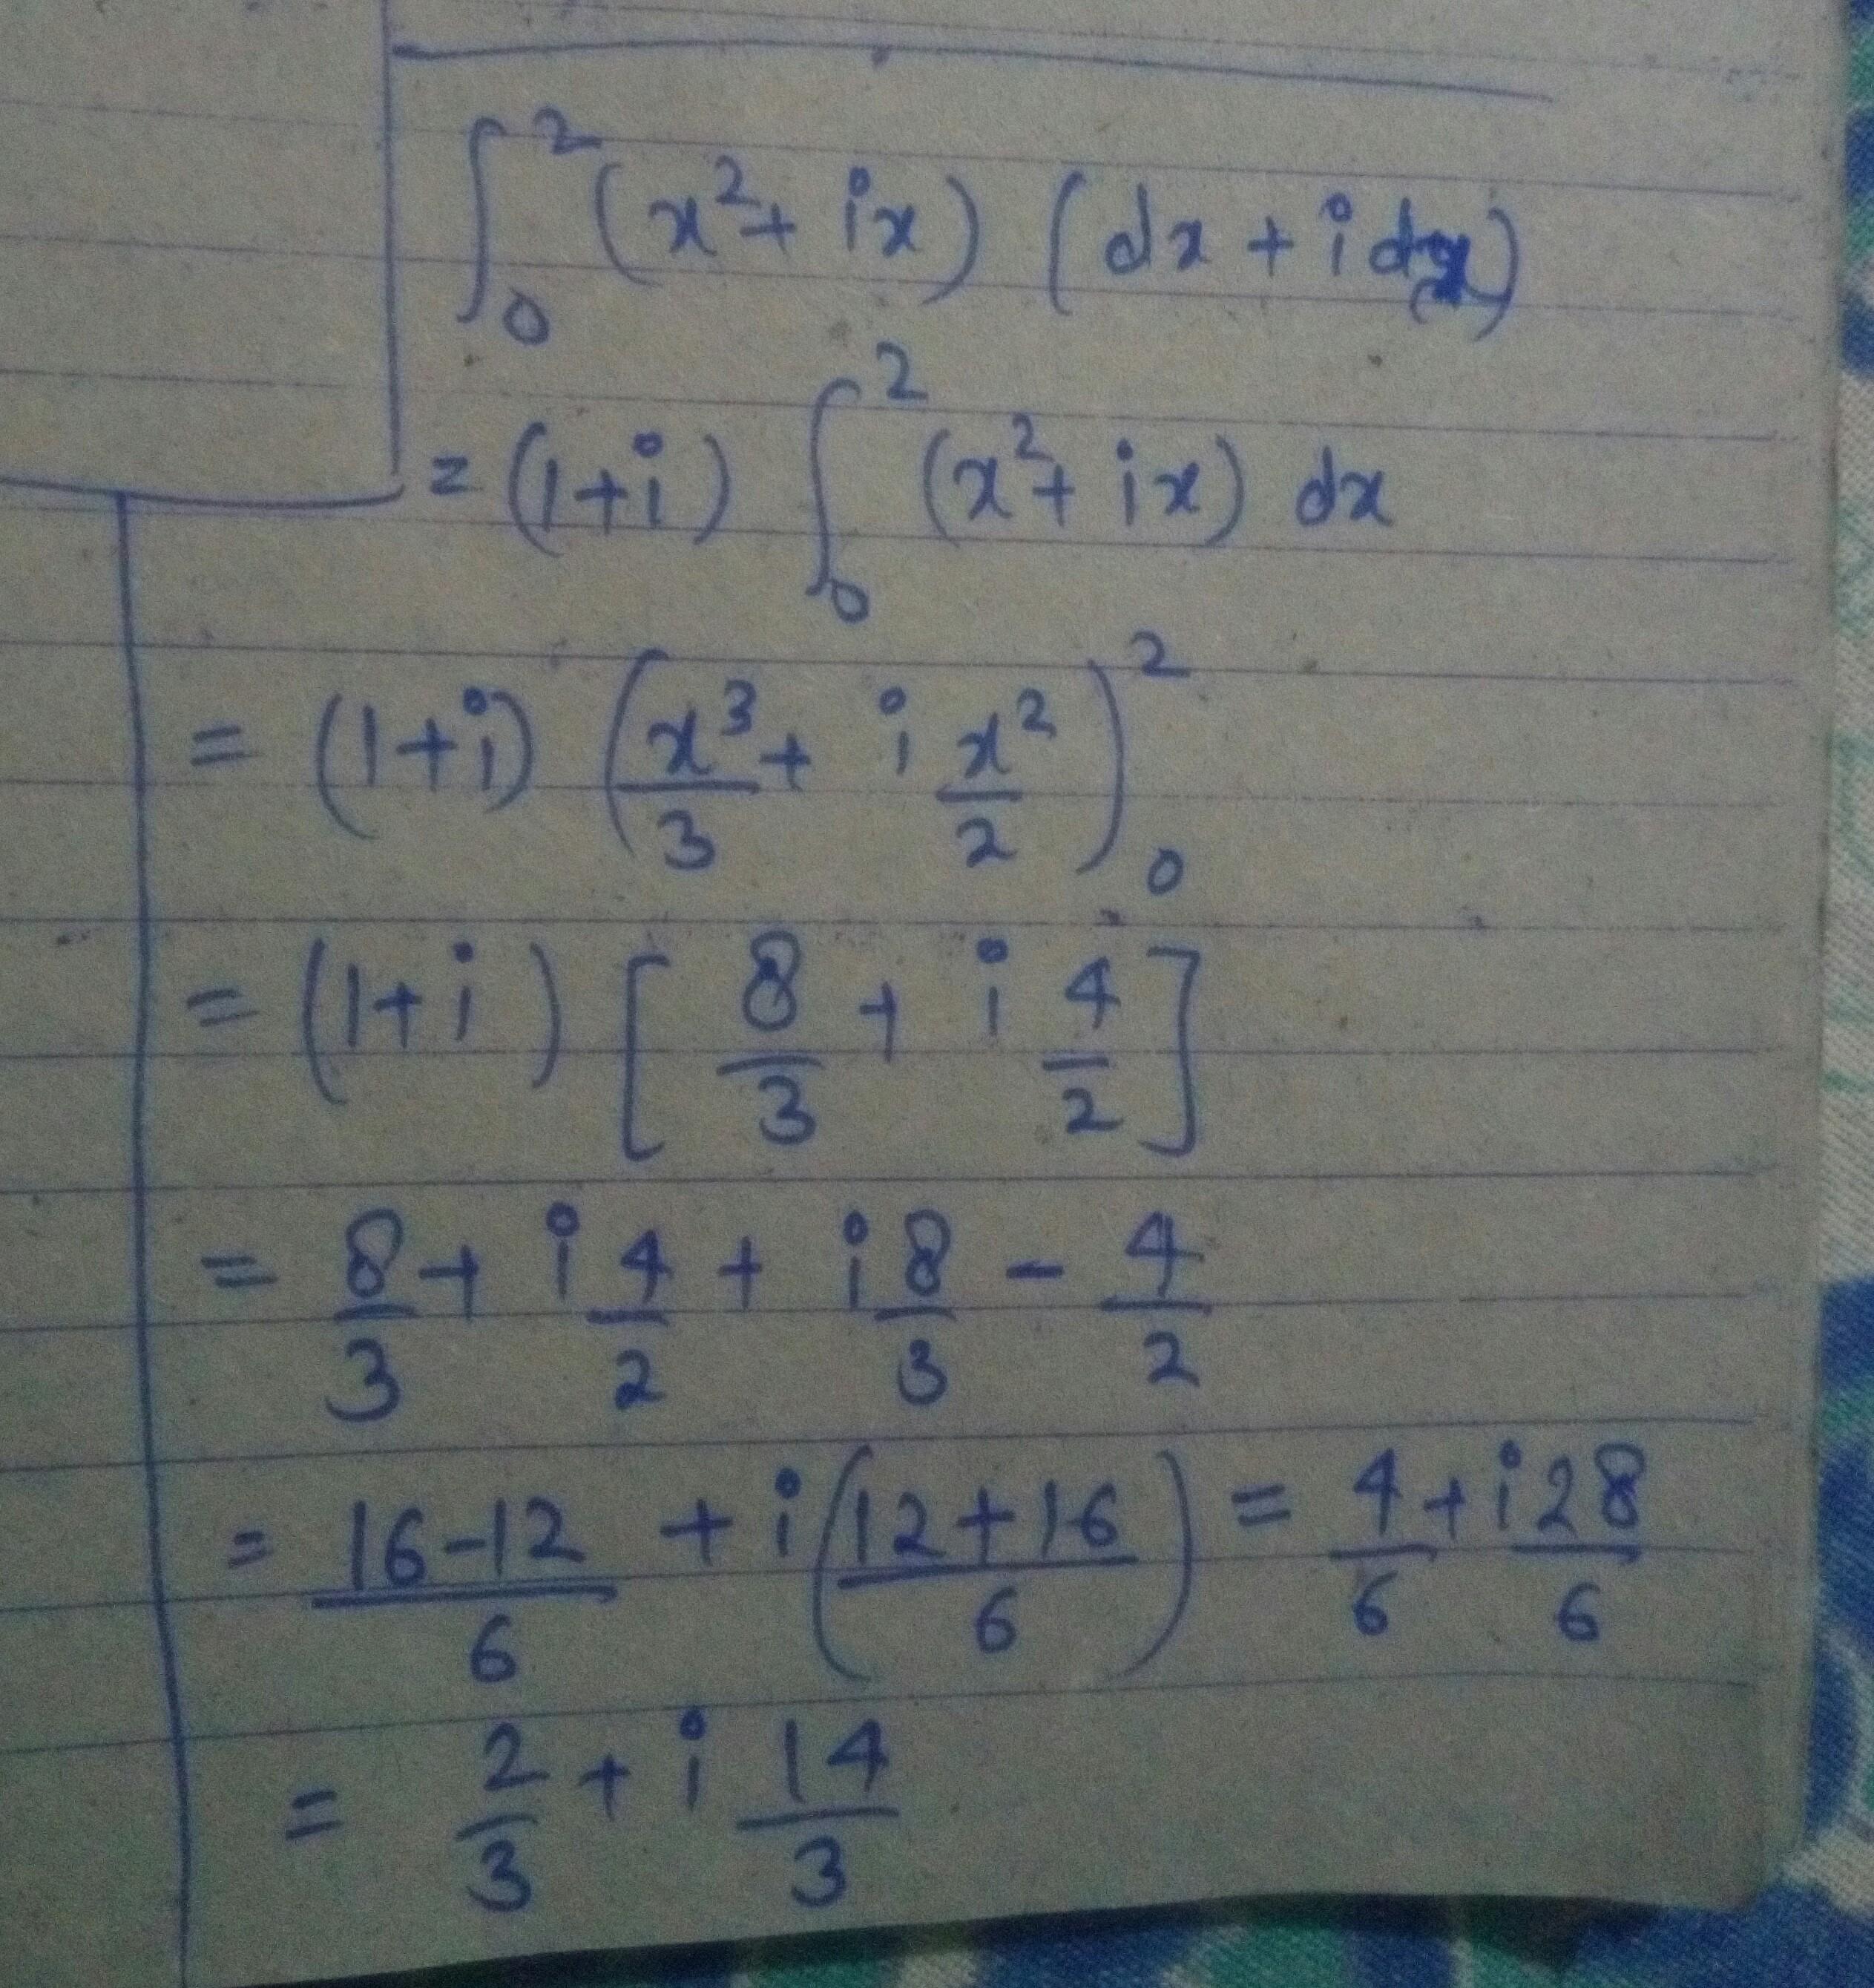 ∫₀² (x² + ix) (dx + i dx)
= (1+i) ∫₀² (x² + ix) dx
= (1+i) (x³/3 + i x²/2)₀²
= (1+i) [8/3 + i 4/2]
= 8/3 + i 4/2 + i 8/3 - 4/2
= (16-12)/6 + i((12+16)/6) = 4/6 + i 28/6
= 2/3 + i 14/3